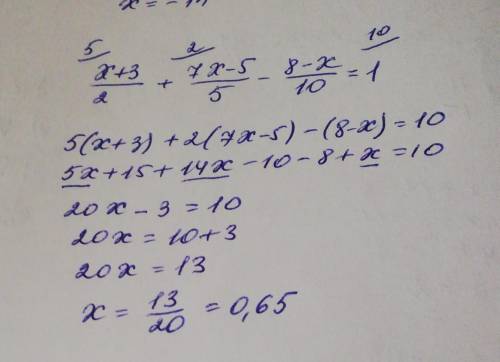 x = -14
5 2 10
x+3/2 + 7x-5/5 - 8-x/10 = 1
5(x+3) + 2(7x-5) - (8-x) = 10
5x + 15 + 14x - 10 - 8 + x = 10
20x - 3 = 10
20x = 10+3
20x = 13
x = 13/20 = 0,65